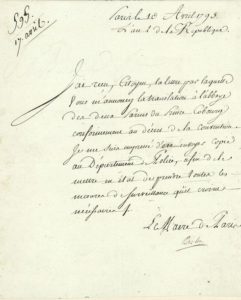 595.
17 avril.
Paris le 18 Avril 1793.
L'an 2 de la République
J'ai reçu, Citoyen, la lettre par laquelle
vous m'annoncez la translation à l'abbaye
des deux
conformément au décret de la convention
Je me suis empressé d'en envoyer copie
au Département de Police, afin de le
mettre en état de prendre toutes les
mesures de surveillance qu'il croira
nécessaires
Le Maire de Paris